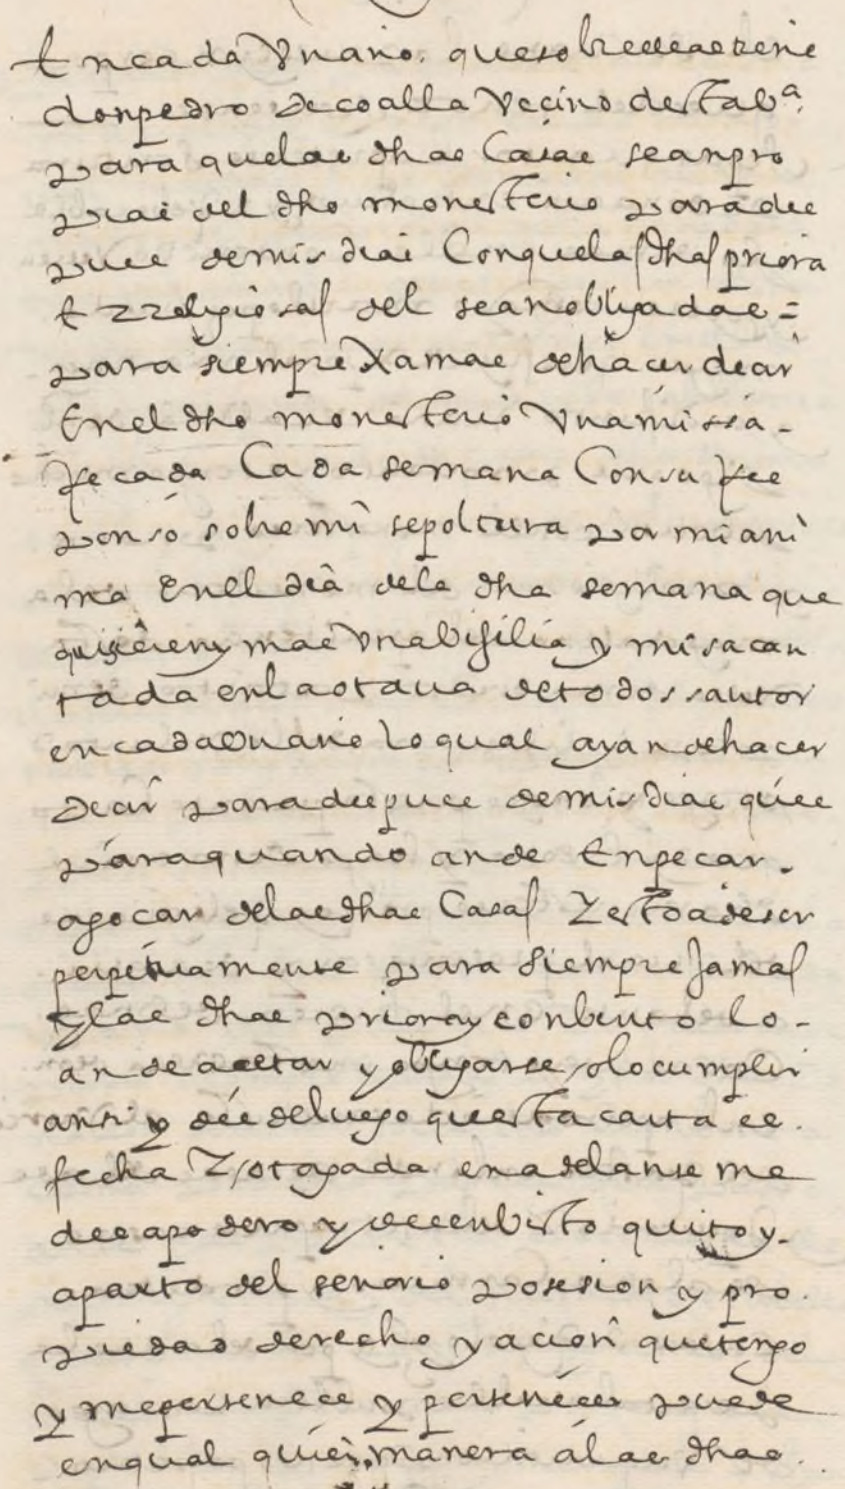 En cada Un año. que sobre ellas tiene
don pedro de coalla Vecino desta bª.
para que las dhas Casas sean pro
pias del dho monesterio para des
pues de mis dias Con que las dhas priora
E rreligiosas del sean obligadas =
para siempre Xamas de hacer decir
En el dho monesterio Una missa -
Reçada Cada semana Con su Res
ponso sobre mi sepoltura por mi ani
ma En el dia de la dha semana que
quisieren y mas Una bigilia y misa can
tada en la otaua de todos santos
en cada Un año lo qual ayan de hacer
decir para despues de mis dias ques
para quando an de Enpeçar -
a goçar de las dhas Casas Y esto a de ser
perpetuamente para siempre Jamas
y las dhas priora y conbento lo -
an de acetar y obligarse solo cumplir
ansi y desde luego questa carta es.
fecha Y otorgada en adelante me
desapodero y desenbisto quito y -
aparto del senorio posesion y pro.
piedad derecho y acion que tengo
y me pertenece y pertenecer puede
en qual quier manera á las dhas.